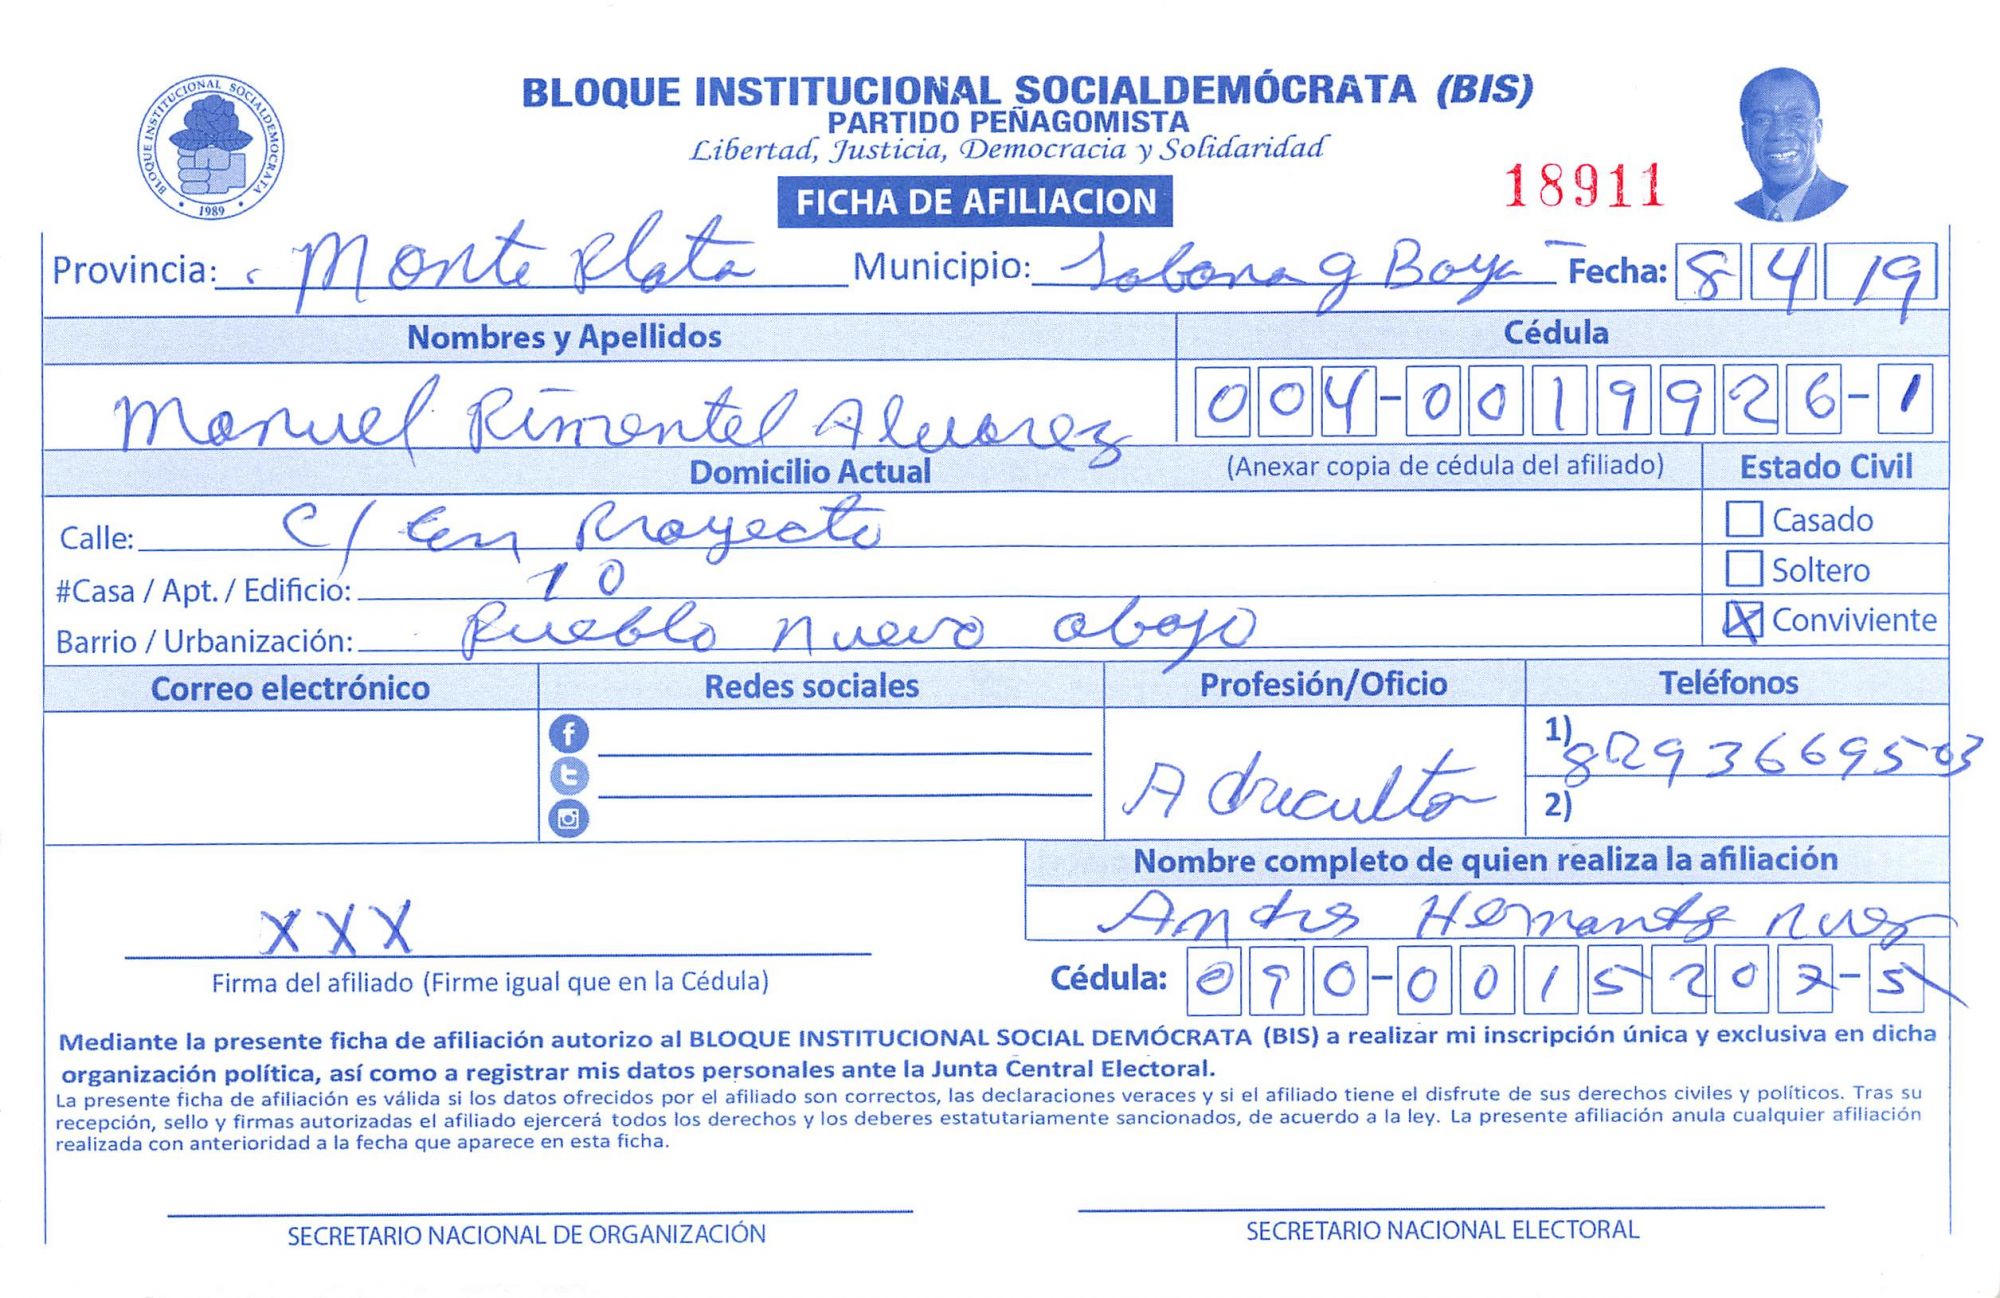 BLOQUE INSTITUCIONAL SOCIALDEMÓCRATA (BIS)
PARTIDO PEÑAGOMISTA
Libertad, Justicia, Democracia y Solidaridad
BLOQUE INSTITUCIONAL SOCIALDEMOCRATA
• 1989 •
18911
FICHA DE AFILIACION
Provincia: Monte Plata Municipio: Sabana g Boya Fecha: 8 4 19
Nombres y Apellidos Cédula
Manuel Pimentel Alvarez 004-0019926-1
Domicilio Actual (Anexar copia de cédula del afiliado) Estado Civil
Calle: C/ En Proyecto Casado
#Casa / Apt. / Edificio: 10 Soltero
Barrio / Urbanización: Pueblo nuevo abajo X Conviviente
Correo electrónico Redes sociales Profesión/Oficio Teléfonos
1) 8293669503
Adricultor
2)
Nombre completo de quien realiza la afiliación
XXX Andres
Firma del afiliado (Firme igual que en la Cédula) Cédula: 090-0015207-5
Mediante la presente ficha de afiliación autorizo al BLOQUE INSTITUCIONAL SOCIAL DEMÓCRATA (BIS) a realizar mi inscripción única y exclusiva en dicha
organización política, así como a registrar mis datos personales ante la Junta Central Electoral.
La presente ficha de afiliación es válida si los datos ofrecidos por el afiliado son correctos, las declaraciones veraces y si el afiliado tiene el disfrute de sus derechos civiles y políticos. Tras su
recepción, sello y firmas autorizadas el afiliado ejercerá todos los derechos y los deberes estatutariamente sancionados, de acuerdo a la ley. La presente afiliación anula cualquier afiliación
realizada con anterioridad a la fecha que aparece en esta ficha.
SECRETARIO NACIONAL DE ORGANIZACIÓN SECRETARIO NACIONAL ELECTORAL